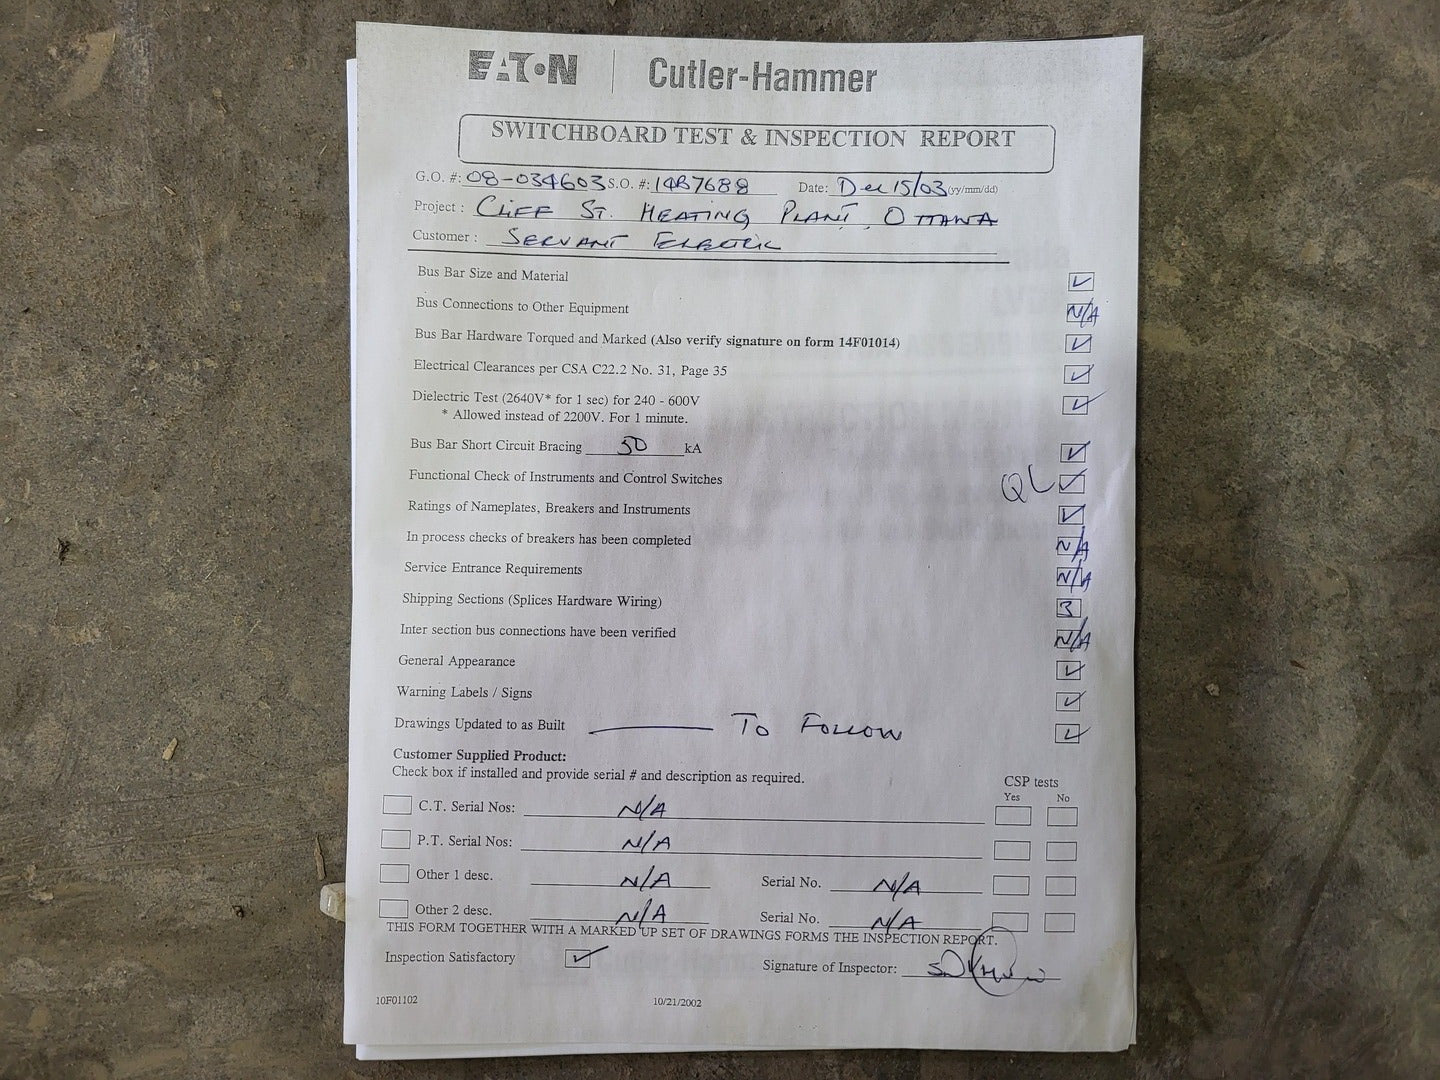 EATON | Cutler-Hammer
SWITCHBOARD TEST & INSPECTION REPORT
G.O. #: 08-034603 S.O. #: 14B7688 Date: Dec 15/03 (yy/mm/dd)
Project : CLIFF ST. HEATING PLANT, OTTAWA
Customer : SERVANT ELECTRIC
Bus Bar Size and Material ✓
Bus Connections to Other Equipment N/A
Bus Bar Hardware Torqued and Marked (Also verify signature on form 14F01014) ✓
Electrical Clearances per CSA C22.2 No. 31, Page 35 ✓
Dielectric Test (2640V* for 1 sec) for 240 - 600V ✓
* Allowed instead of 2200V. For 1 minute.
Bus Bar Short Circuit Bracing 50 kA ✓
Functional Check of Instruments and Control Switches QC ✓
Ratings of Nameplates, Breakers and Instruments ✓
In process checks of breakers has been completed N/A
Service Entrance Requirements N/A
Shipping Sections (Splices Hardware Wiring) 3
Inter section bus connections have been verified N/A
General Appearance ✓
Warning Labels / Signs ✓
Drawings Updated to as Built —— TO FOLLOW ✓
Customer Supplied Product:
Check box if installed and provide serial # and description as required. CSP tests
Yes No
C.T. Serial Nos: N/A
P.T. Serial Nos: N/A
Other 1 desc. N/A Serial No. N/A
Other 2 desc. N/A Serial No. N/A
THIS FORM TOGETHER WITH A MARKED UP SET OF DRAWINGS FORMS THE INSPECTION REPORT.
Inspection Satisfactory ✓ Signature of Inspector:
10F01102 10/21/2002